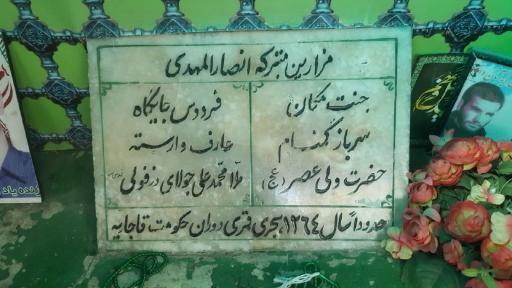 مزارین متبرکه انصارالمهدی
جنت مکان
سرباز گمنام
حضرت ولی عصر (عج)
فردوس جایگاه
عارف وارسته
ملا محمد علی جولای دزفولی
حدوداً سال ۱۲۶۴ هجری قمری دوران حکومت قاجاریه
زنده یاد